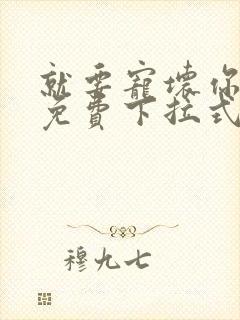 就要寵壞你
免費下拉式
穆九七